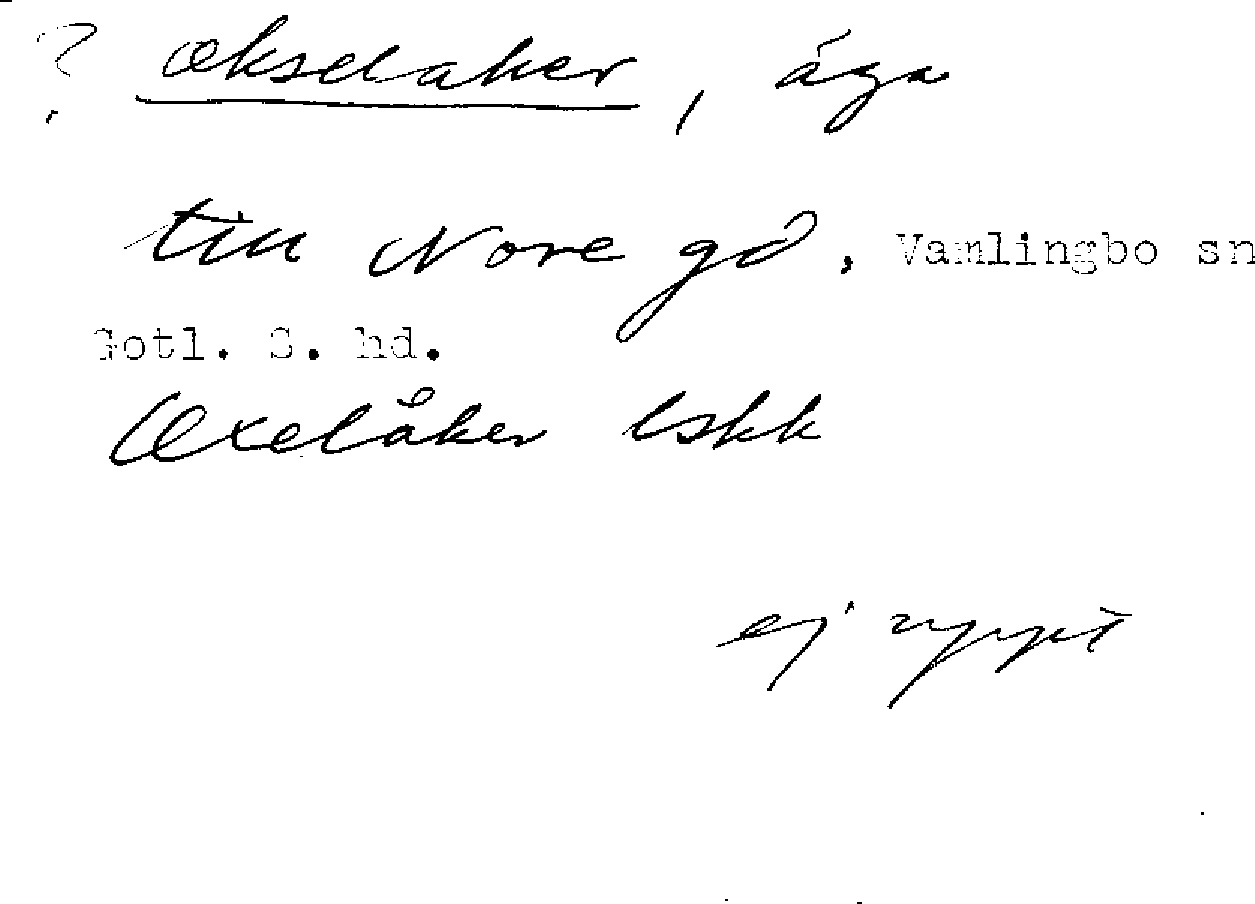 ? økselaker, äga
till Nore gd, Vamlingbo sn
Gotl. S. hd.
Oxelåker lskk
ej